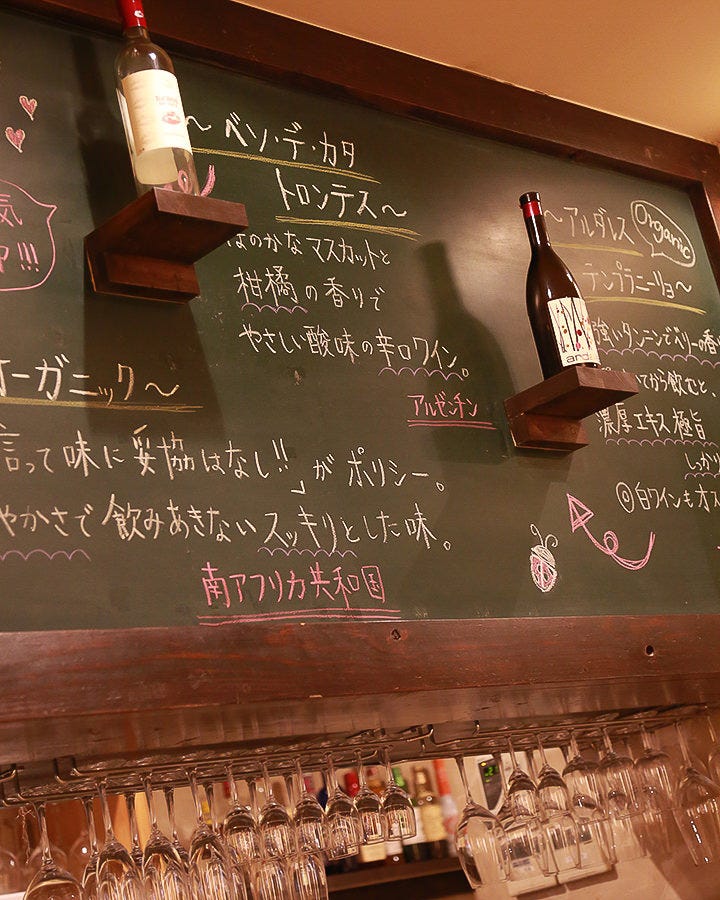 ~ベソ・デ・カタ
トロンテス~
ほのかなマスカットと
柑橘の香りで
やさしい酸味の辛口ワイン。
アルゼンチン
~アルダレス
Organic
テンプラニーリョ~
強いタンニンでベリーの香
てから飲むと、
濃厚エキス極旨
しっかり
◎白ワインもオ
and
気
!!!
オーガニック~
言って味に妥協はなし!!」がポリシー。
やかさで飲みあきないスッキリとした味。
南アフリカ共和国